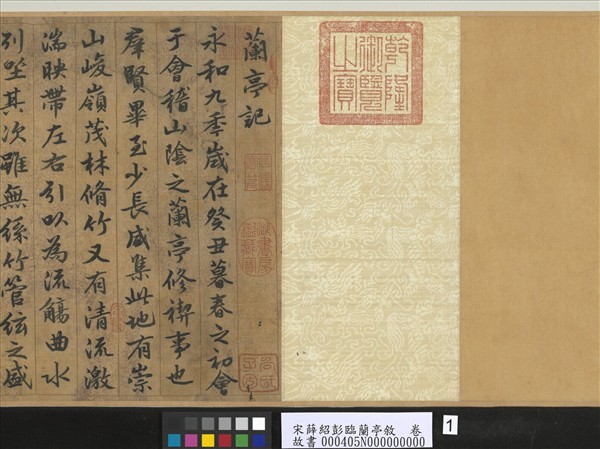 乾隆御覽之寶
蘭亭記
永和九年歲在癸丑暮春之初會
于會稽山陰之蘭亭修禊事也
羣賢畢至少長咸集此地有崇
山峻嶺茂林脩竹又有清流激
湍映帶左右引以為流觴曲水
列坐其次雖無絲竹管絃之盛
宋薛紹彭臨蘭亭敘 卷
故書 000405N000000000
1